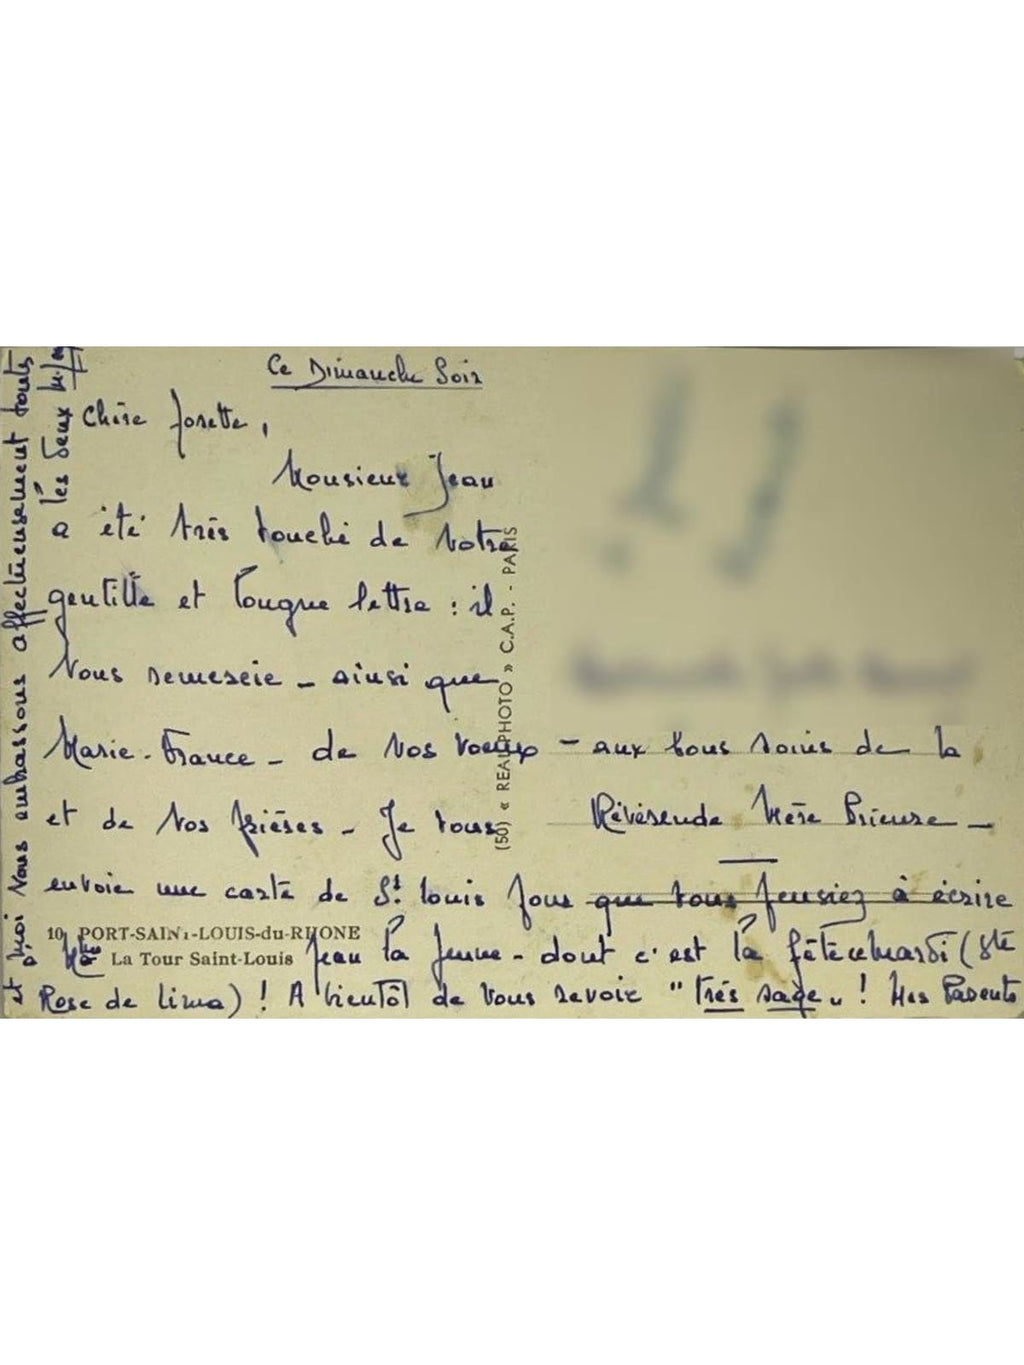 Ce Dimanche Soir
Chère Josette,
Monsieur Jean
a été très touché de votre
gentille et longue lettre : il
vous remercie - ainsi que
Marie-France - de vos voeux
et de vos prières - Je vous
envoie une carte de St Louis pour que vous pensiez à écrire
à Mme Jean la jeune - dont c'est la fête mardi (Ste
Rose de Lima) ! A bientôt de vous revoir "très sage" ! Mes Parents
et moi vous embrassons affectueusement toutes
les deux
- aux bons soins de la
Révérende Mère Prieure -
10 PORT-SAINT-LOUIS-du-RHONE
La Tour Saint-Louis
(50) « REAL-PHOTO » C.A.P. - PARIS